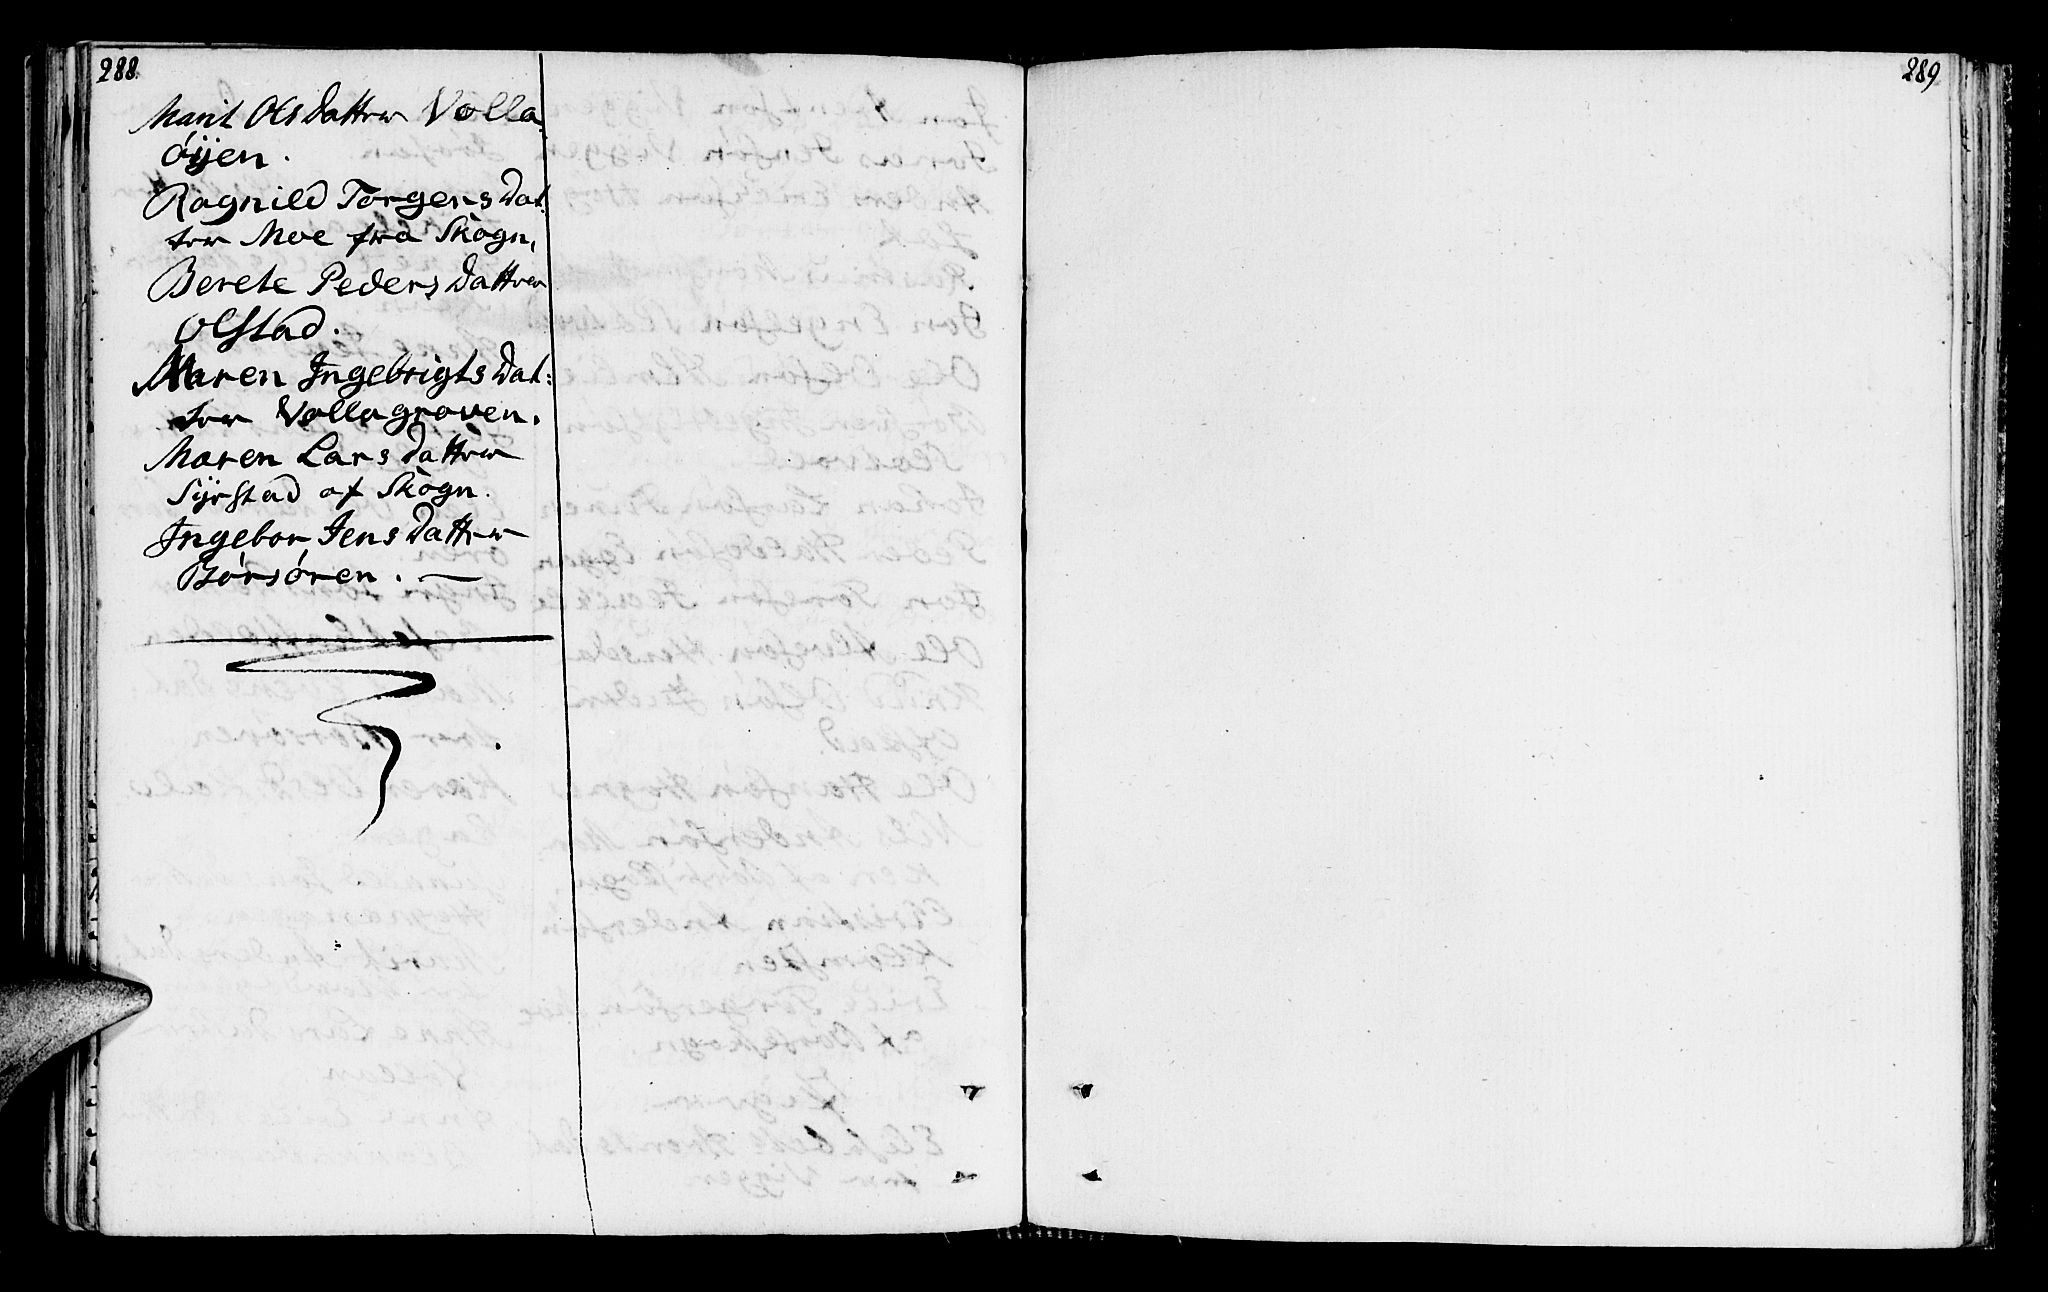 288.
Marit Ols Datter Volla
öijen.
Ragnild Torgers Dat:
ter Moe fra Skogn,
Berete Peders Datter
Olstad.
Maren Ingebrigts Dat:
ter Vollagroven.
Maren Lars Datter
Sÿrstad af Skogn.
Ingebor Jens Datter
Börsören. —
289